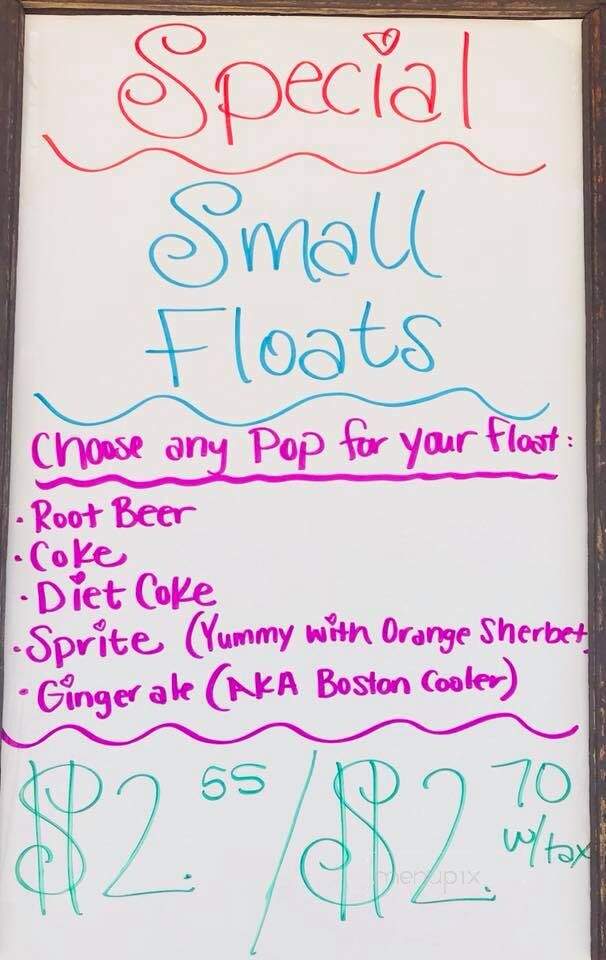 Special
Small
Floats
Choose any Pop for your float:
· Root Beer
· Coke
· Diet Coke
· Sprite (Yummy with Orange Sherbet
· Ginger ale (AKA Boston Cooler)
$2.55 / $2.70 w/tax
menupix